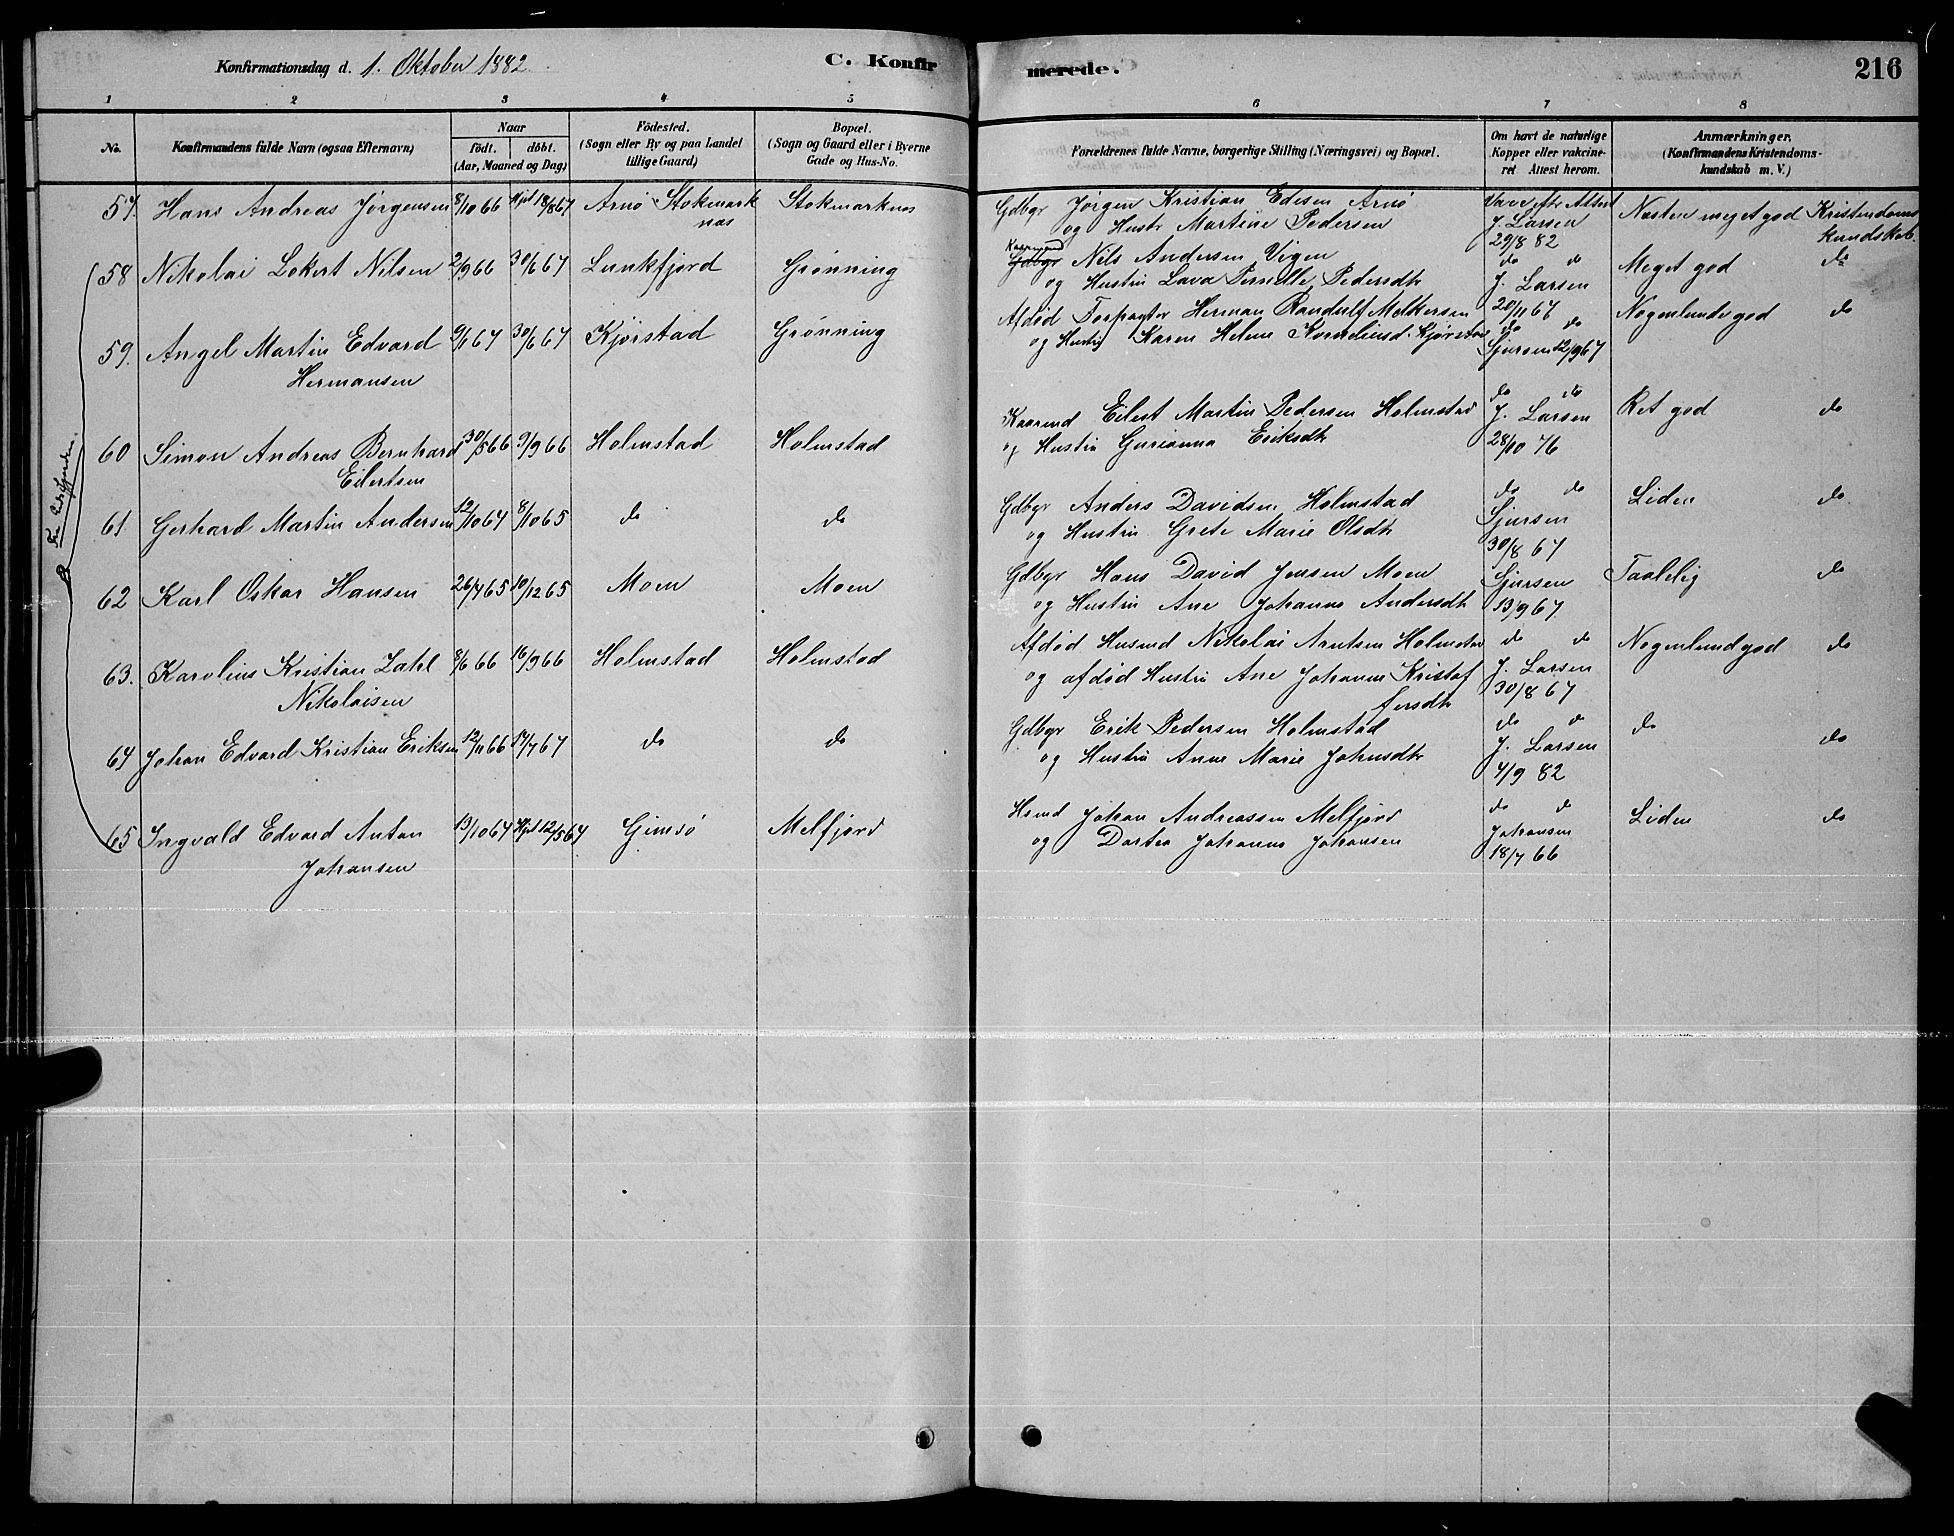 Konfirmationsdag d. 1. Oktober 1882
C. Konfirmerede.
216
1 2 3 4 5 6 7 8
No.
Konfirmandens fulde Navn (ogsaa Efternavn)
Naar
födt. döbt.
(Aar, Maaned og Dag)
Födested.
(Sogn eller By og paa Landet
tillige Gaard)
Bopæl.
(Sogn og Gaard eller i Byerne
Gade og Hus-No.
Forældrenes fulde Navne, borgerlige Stilling (Næringsvei) og Bopæl.
Om havt de naturlige
Kopper eller vakcine-
ret Attest herom.
Anmærkninger.
(Konfirmandens Kristendoms-
kundskab m. V.)
57. Hans Andreas Jørgensen 8/10 66 Hjd 18/8 67 Arnø Stokmark Stokmarknes
nes
Gdbgr Jørgen Kristian Edisen Arnø
og Hustr Martine Pedersen
Vacc efter Attest
J. Larsen
29/8 82
Næsten meget god Kristendoms
kundskab.
58 Nikolai Lokert Nilsen 2/9 66 30/6 67 Lunkfjord Grønning
Gdbgr Nils Andersen Vigen
og Hustru Lava Pernille Pedersdtr
do do
J. Larsen
20/11 67
Meget god do
59. Angel Martin Edvard 9/1 67 30/6 67 Kjørstad Grønning
Hermansen
Afdød Forpagter Herman Randulf Melkersen
og Hustru Karen Helene Kornelius d. Kjørstad
do do
Sjursen 12/9 67
Nogenlunde god do
60 Simon Andreas Bernhard 30/5 66 9/9 66 Holmstad Holmstad
Eilertsen
Kaarmd Eilert Martin Pedersen Holmstad
og Hustru Gurianna Eriksdtr
do do
J. Larsen
28/10 76
Ret god do
61 Gerhard Martin Andersen 12/10 64 8/10 65 do do
Gdbgr Anders Davidsen Holmstad
og Hustru Grete Marie Olsdtr
do do
Sjursen
30/8 67
Liden do
62 Karl Oskar Hansen 26/7 65 10/12 65 Moen Moen
Gdbgr Hans David Jensen Moen
og Hustru Ane Johanna Andersdtr
Sjursen
13/9 67
Taalelig do
63. Karolius Kristian Zahl 8/6 66 16/9 66 Holmstad Holmstad
Nikolaisen
Afdød Husmd Nikolai Arntsen Holmstad
og afdød Hustru Ane Johanna Kristof
fersdtr
do do
J. Larsen
30/8 67
Nogenlund god do
64 Johan Edvard Kristian Eriksen 12/11 66 14/7 67 do do
Gdbgr Erik Pedersen Holmstad
og Hustru Anne Marie Johnsdtr
do do
J. Larsen
4/9 82
do do
65 Ingvald Edvard Anton 13/10 64 Hjd 12/5 64 Gimsø Melfjord
Johansen
Hsmd Johan Andreassen Melfjord
og Dortea Johanna Johansen
do do
Johansen
18/7 66
Liden do